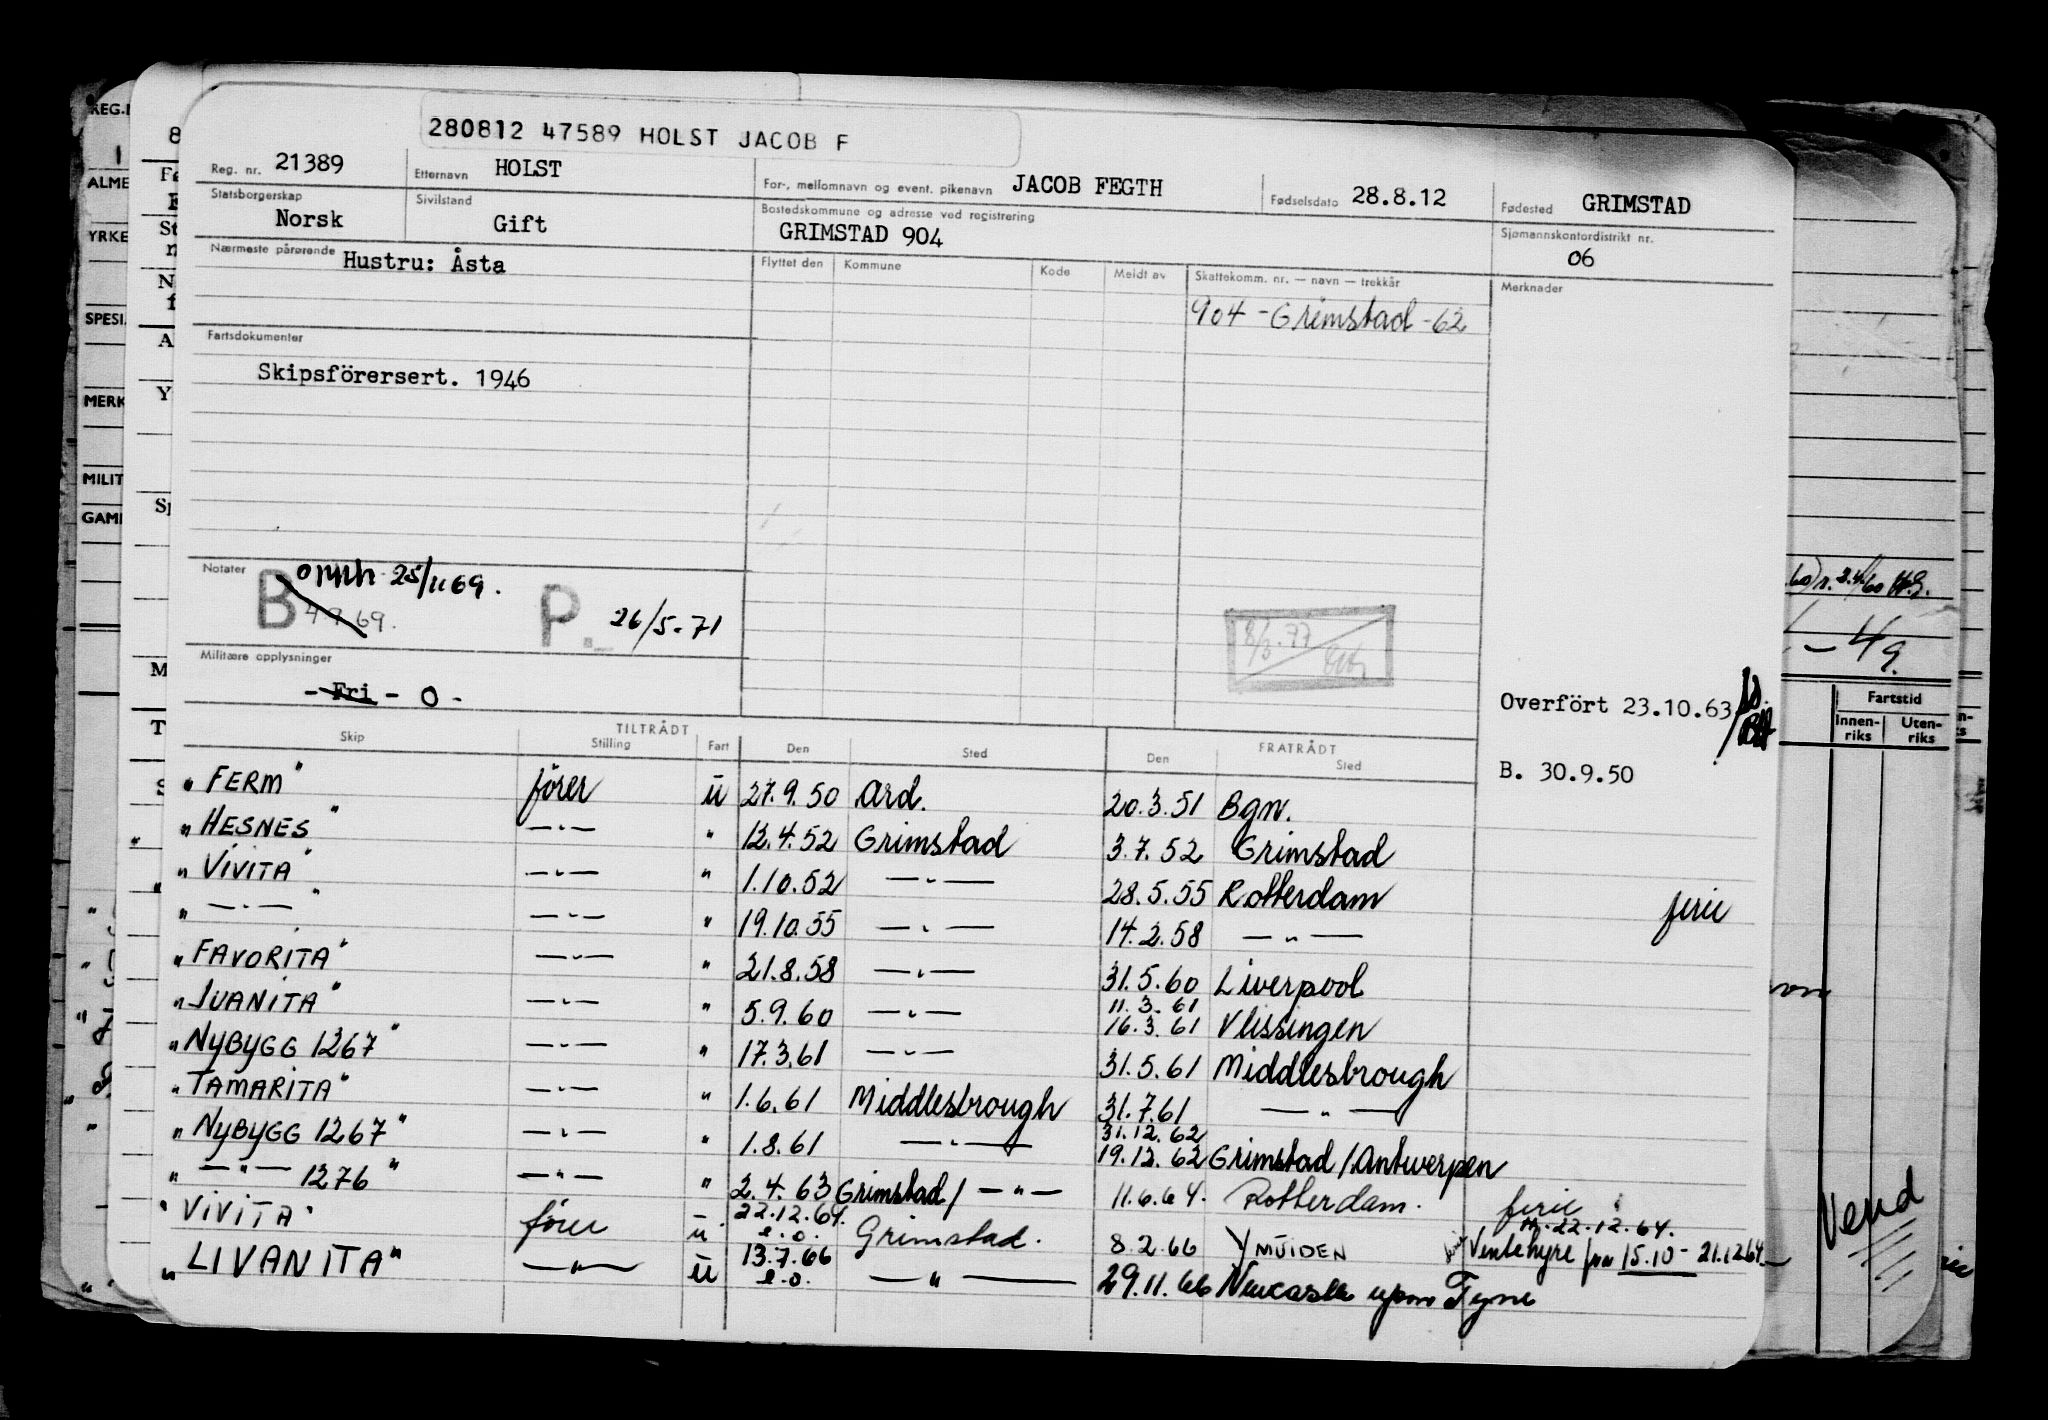 280812 47589 HOLST JACOB F
Reg. nr. 21389 Etternavn HOLST For-, mellomnavn og event. pikenavn JACOB FEGTH Fødselsdato 28.8.12 Fødested GRIMSTAD
Statsborgerskap Norsk Sivilstand Gift Bostedskommune og adresse ved registrering GRIMSTAD 904 Sjømannskontordistrikt nr. 06
Nærmeste pårørende Hustru: Åsta Flyttet den Kommune Kode Meldt av Skattekomm. nr. — navn — trekkår Merknader
904 - Grimstad - 62
Fartsdokumenter
Skipsförersert. 1946
Notater
B 25/11 69.
4 9 69.
P. 26/5-71
8/3.77
Militære opplysninger
- Fri - 0 -
Overfört 23.10.63
B. 30.9.50
TILTRÅDT FRATRÅDT
Skip Stilling Fart Den Sted Den Sted
"FERM" förer ū 27.9.50 Ard. 20.3.51 Bgn.
"HESNES" —"— " 12.4.52 Grimstad 3.7.52 Grimstad
"VIVITA" —"— " 1.10.52 —"— 28.5.55 Rotterdam ferie
"—"—" —"— " 19.10.55 —"— 14.2.58 —"—
"FAVORITA" —"— " 21.8.58 —"— 31.5.60 Liverpool
"JUANITA" —"— " 5.9.60 —"— 11.3.61
16.3.61 Vlissingen
"NYBYGG 1267" —"— " 17.3.61 —"— 31.5.61 Middlesbrough
"TAMARITA" —"— " 1.6.61 Middlesbrough 31.7.61 —"—
"NYBYGG 1267" —"— " 1.8.61 —"— 31.12.62
19.12.62 Grimstad/Antwerpen
"—"— 1276" —"— " 2.4.63 Grimstad/—"— 11.6.64. Rotterdam. ferie
"VIVITA" förer ū 22.12.64. e.o. Grimstad. 8.2.66 YMUIDEN 22.12.64.
Ventehyre fra 15.10 - 21.12.64
"LIVANITA" —"— ū 13.7.66 e.o. —"— 29.11.66 Newcastle upon Tyne
Vend
REG.
ALME
YRKE
SPESI
MERK
MILIT
GAM
- 49.
Fartstid
Innen-
riks
Uten-
riks